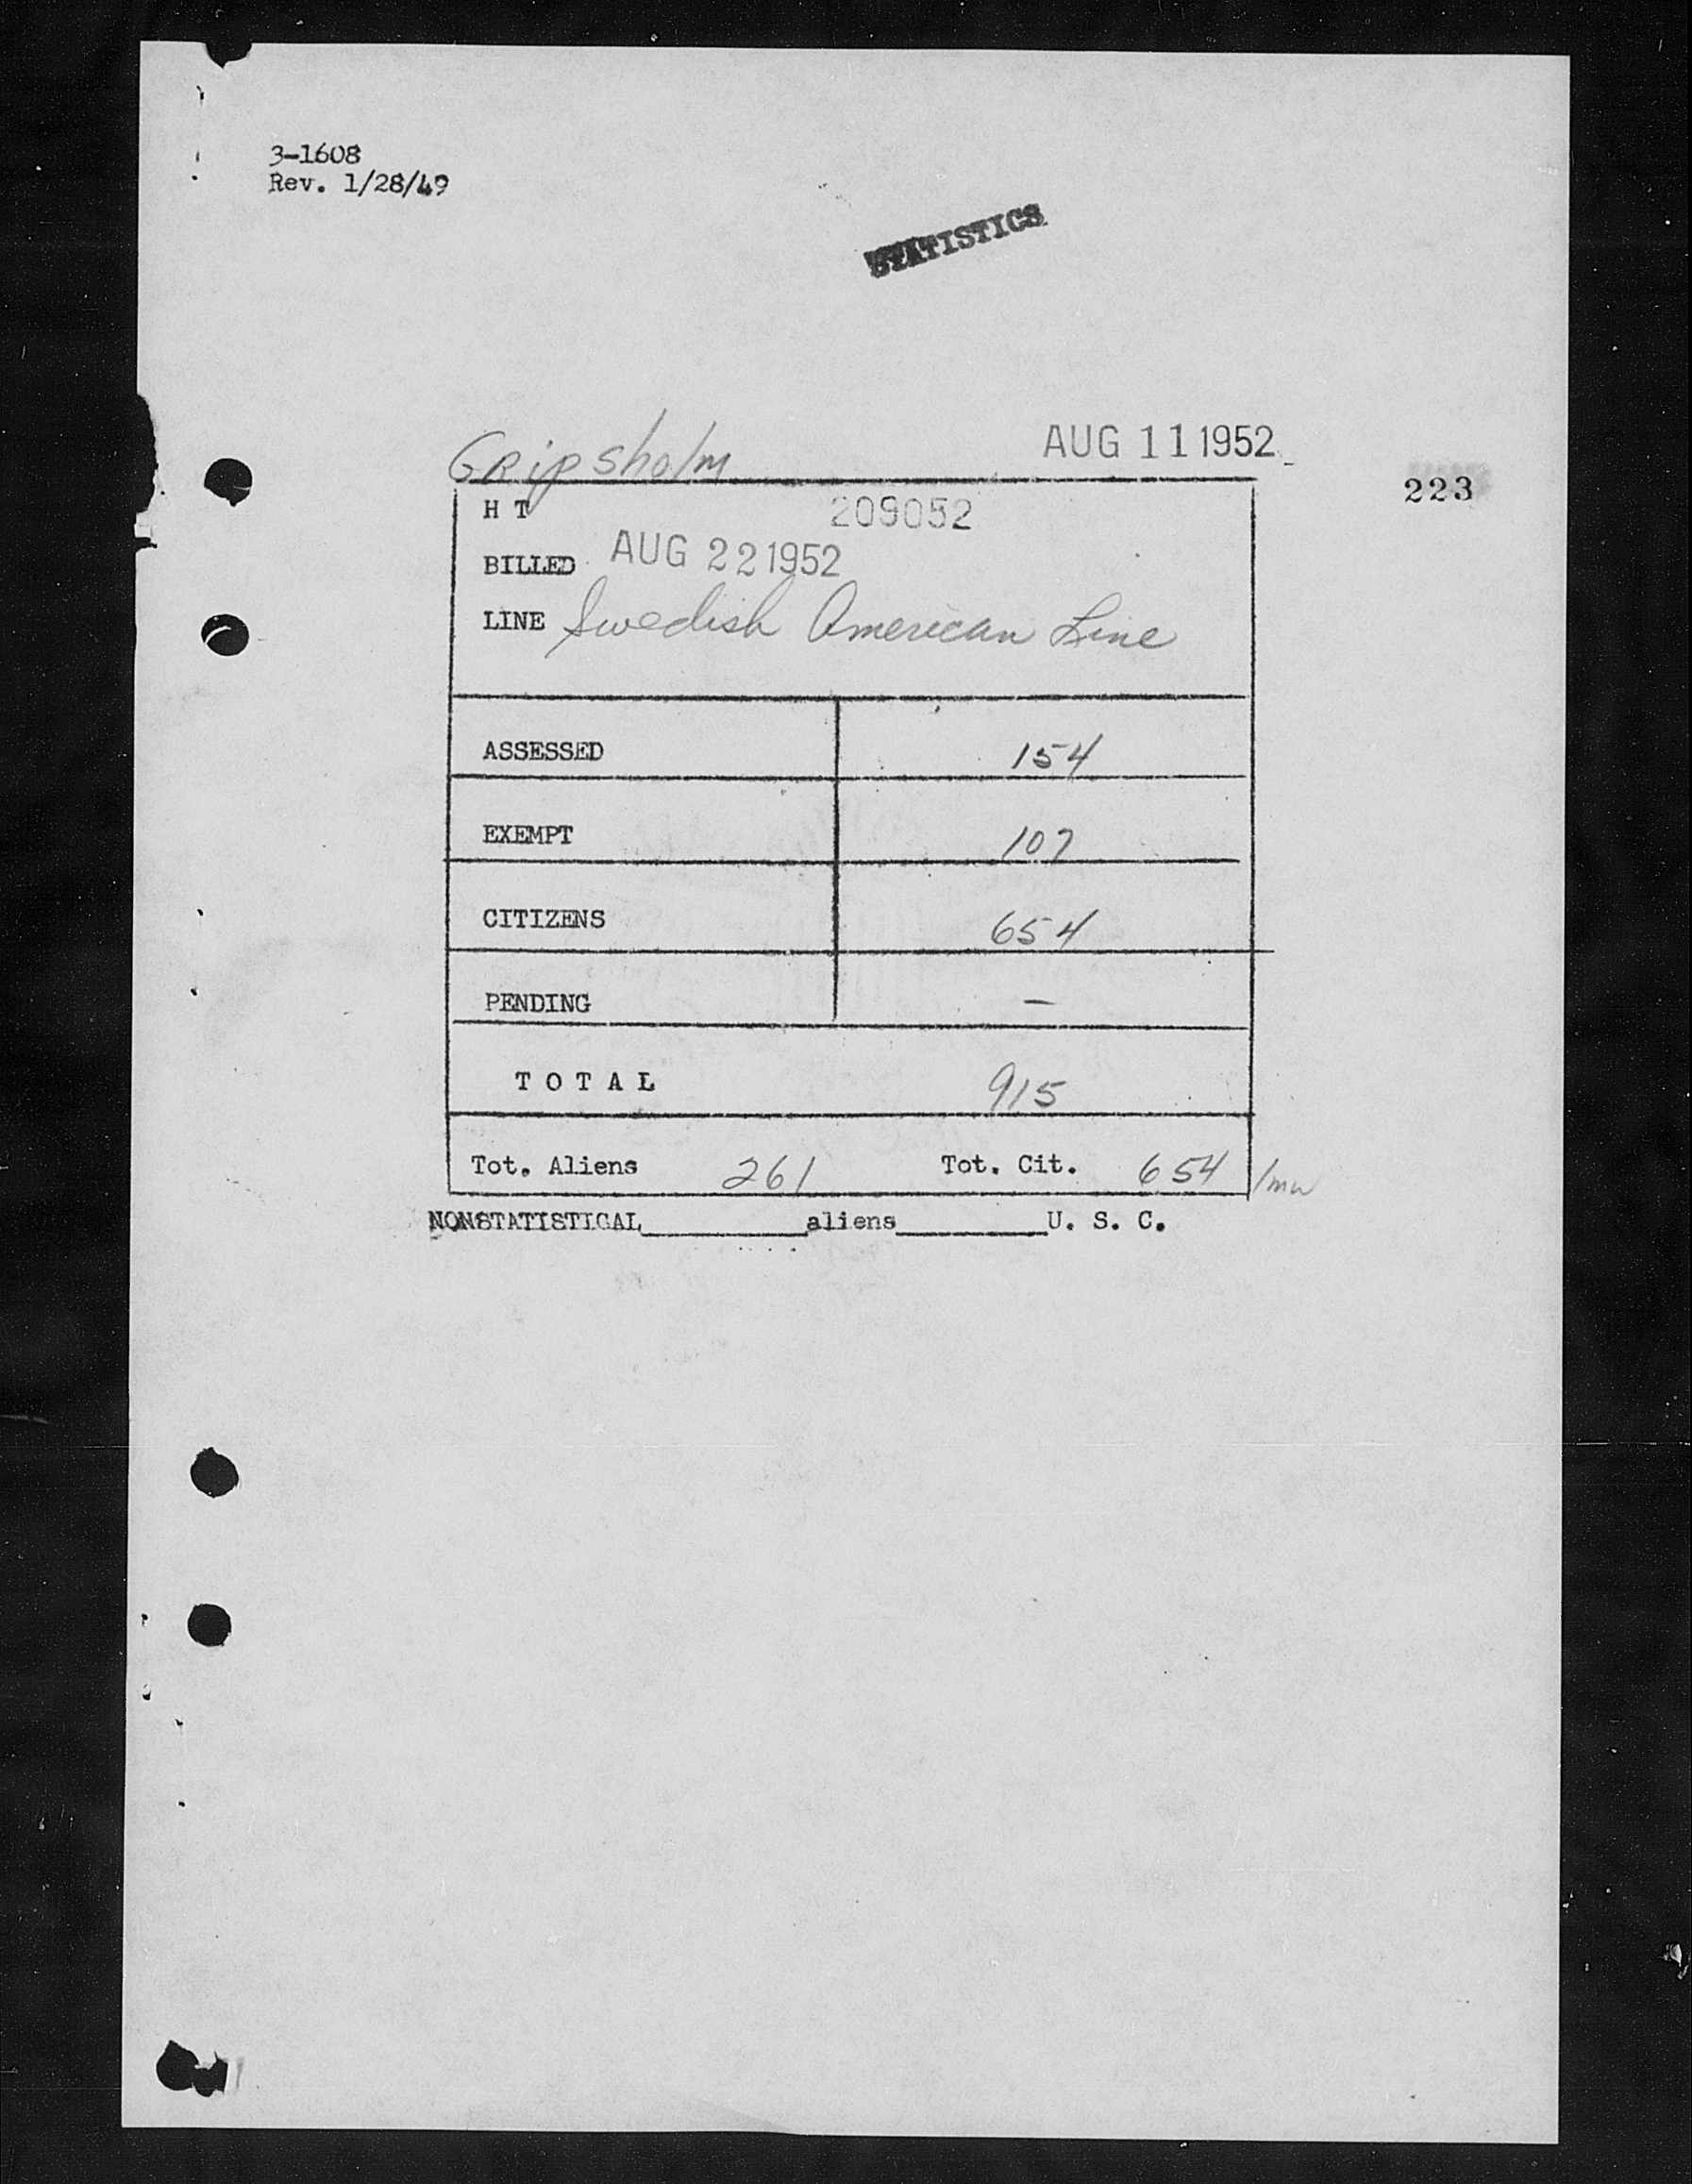 3-1608
Rev. 1/28/49
STATISTICS
Gripsholm AUG 11 1952
223
H T 209052
BILLED AUG 22 1952
LINE Swedish American Line
ASSESSED 154
EXEMPT 107
CITIZENS 654
PENDING —
T O T A L 915
Tot. Aliens 261 Tot. Cit. 654 /mw
NONSTATISTICAL________aliens________U. S. C.